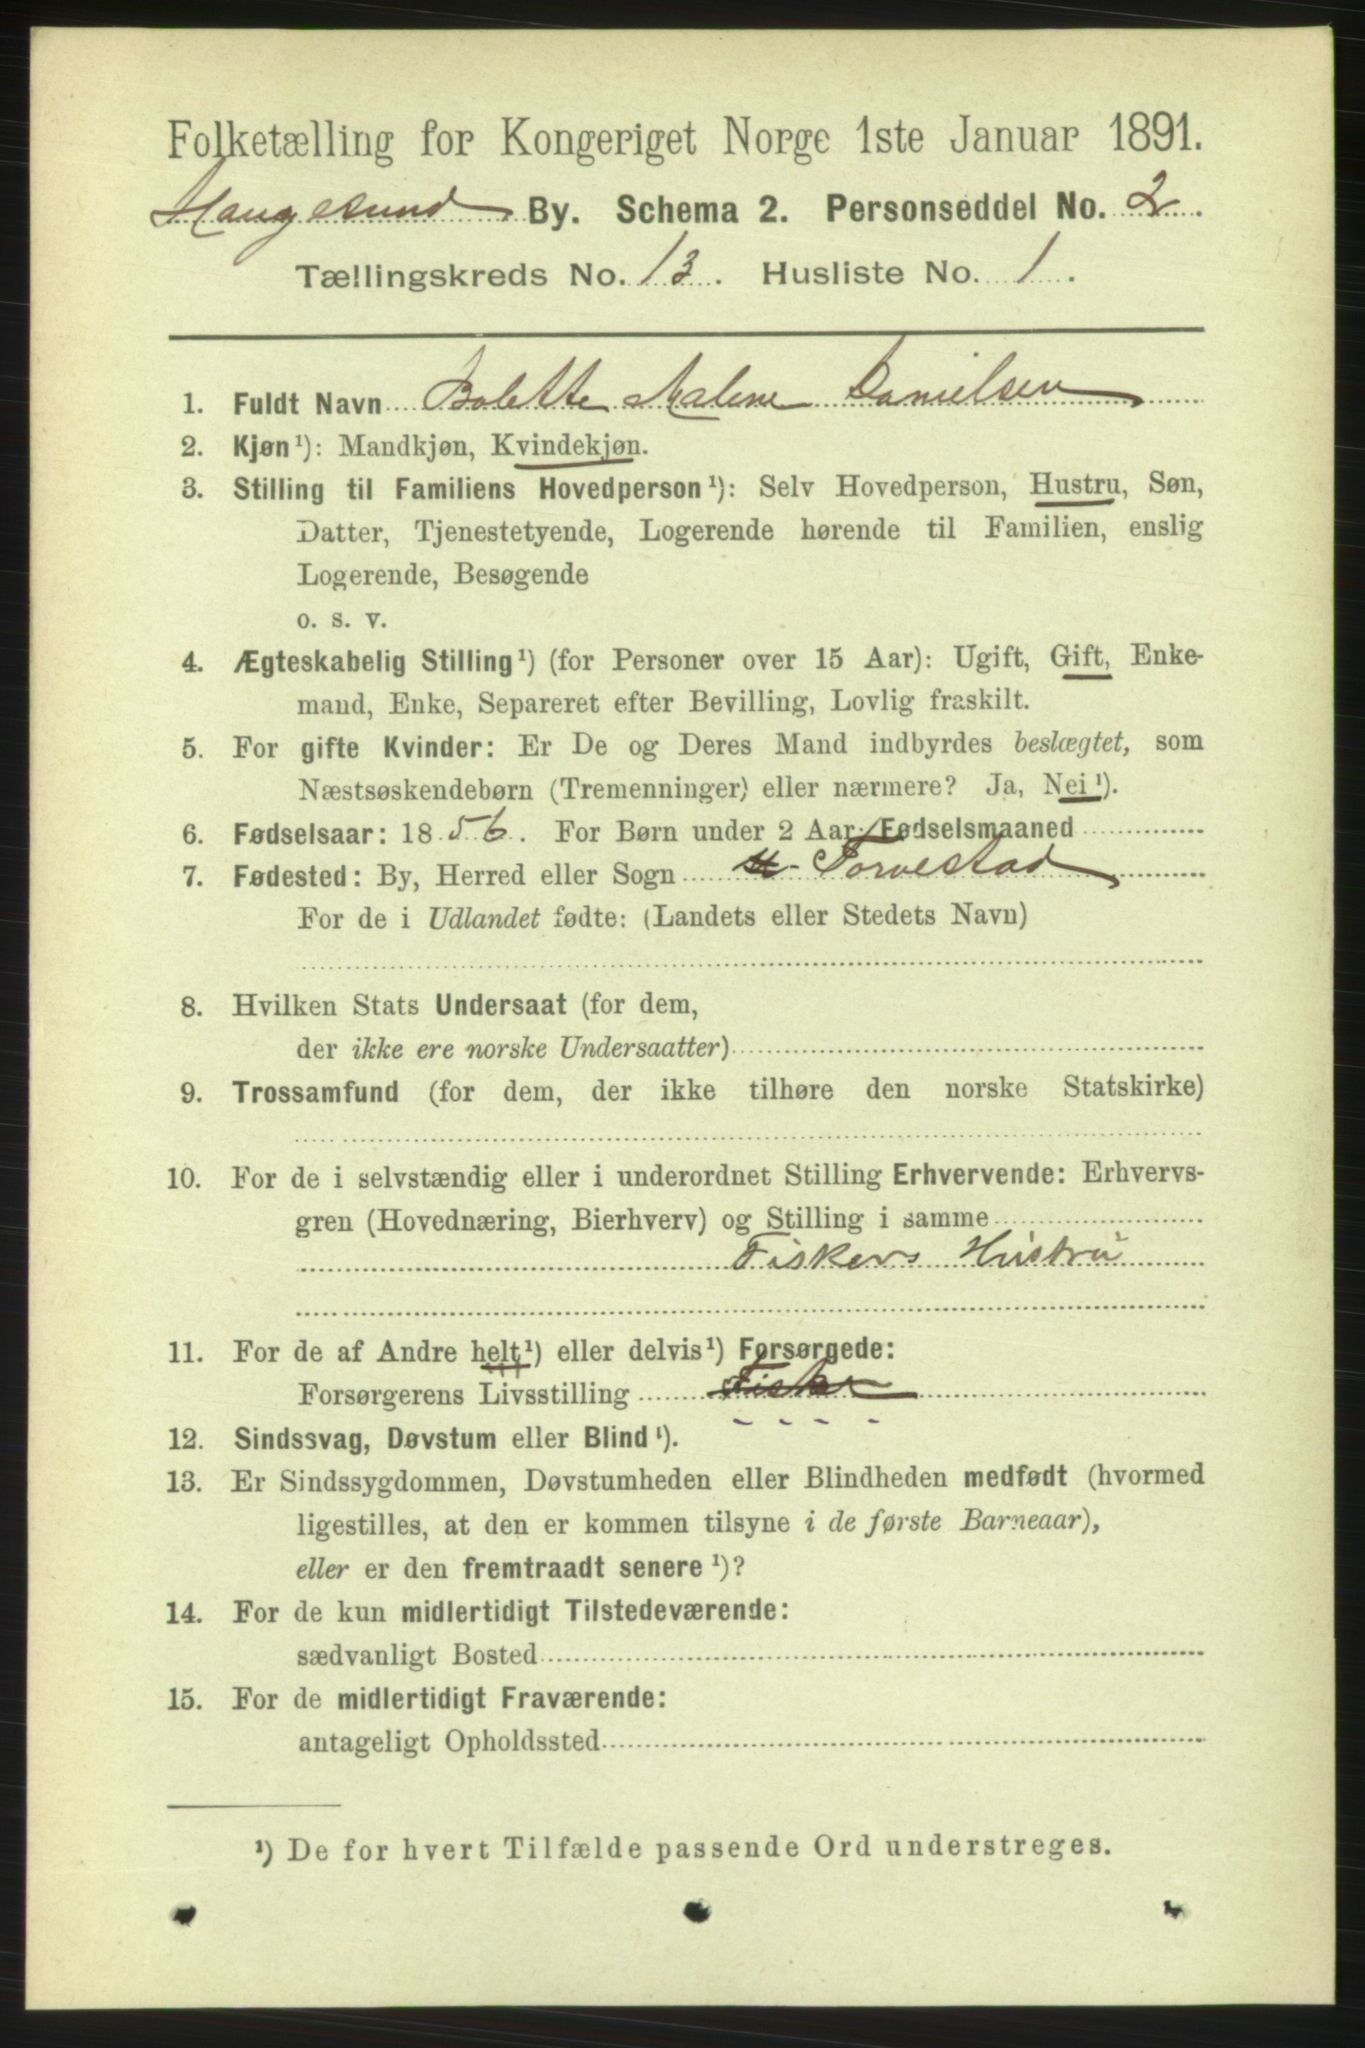 Folketælling for Kongeriget Norge 1ste Januar 1891.
Haugesund By. Schema 2. Personseddel No. 2.
Tællingskreds No. 13. Husliste No. 1.
1. Fuldt Navn Bolette Malene Danielsen
2. Kjøn¹): Mandkjøn, Kvindekjøn.
3. Stilling til Familiens Hovedperson¹): Selv Hovedperson, Hustru, Søn,
Datter, Tjenestetyende, Logerende hørende til Familien, enslig
Logerende, Besøgende
o. s. v.
4. Ægteskabelig Stilling¹) (for Personer over 15 Aar): Ugift, Gift, Enke-
mand, Enke, Separeret efter Bevilling, Lovlig fraskilt.
5. For gifte Kvinder: Er De og Deres Mand indbyrdes beslægtet, som
Næstsøskendebørn (Tremenninger) eller nærmere? Ja, Nei¹).
6. Fødselsaar: 1856. For Børn under 2 Aar: Fødselsmaaned
7. Fødested: By, Herred eller Sogn Torvestad
For de i Udlandet fødte: (Landets eller Stedets Navn)
8. Hvilken Stats Undersaat (for dem,
der ikke ere norske Undersaatter)
9. Trossamfund (for dem, der ikke tilhøre den norske Statskirke)
10. For de i selvstændig eller i underordnet Stilling Erhvervende: Erhvervs-
gren (Hovednæring, Bierhverv) og Stilling i samme
Fiskers Hustru
11. For de af Andre helt¹) eller delvis¹) Forsørgede:
Forsørgerens Livsstilling Fisker
12. Sindssvag, Døvstum eller Blind¹).
13. Er Sindssygdommen, Døvstumheden eller Blindheden medfødt (hvormed
ligestilles, at den er kommen tilsyne i de første Barneaar),
eller er den fremtraadt senere¹)?
14. For de kun midlertidigt Tilstedeværende:
sædvanligt Bosted
15. For de midlertidigt Fraværende:
antageligt Opholdssted
¹) De for hvert Tilfælde passende Ord understreges.